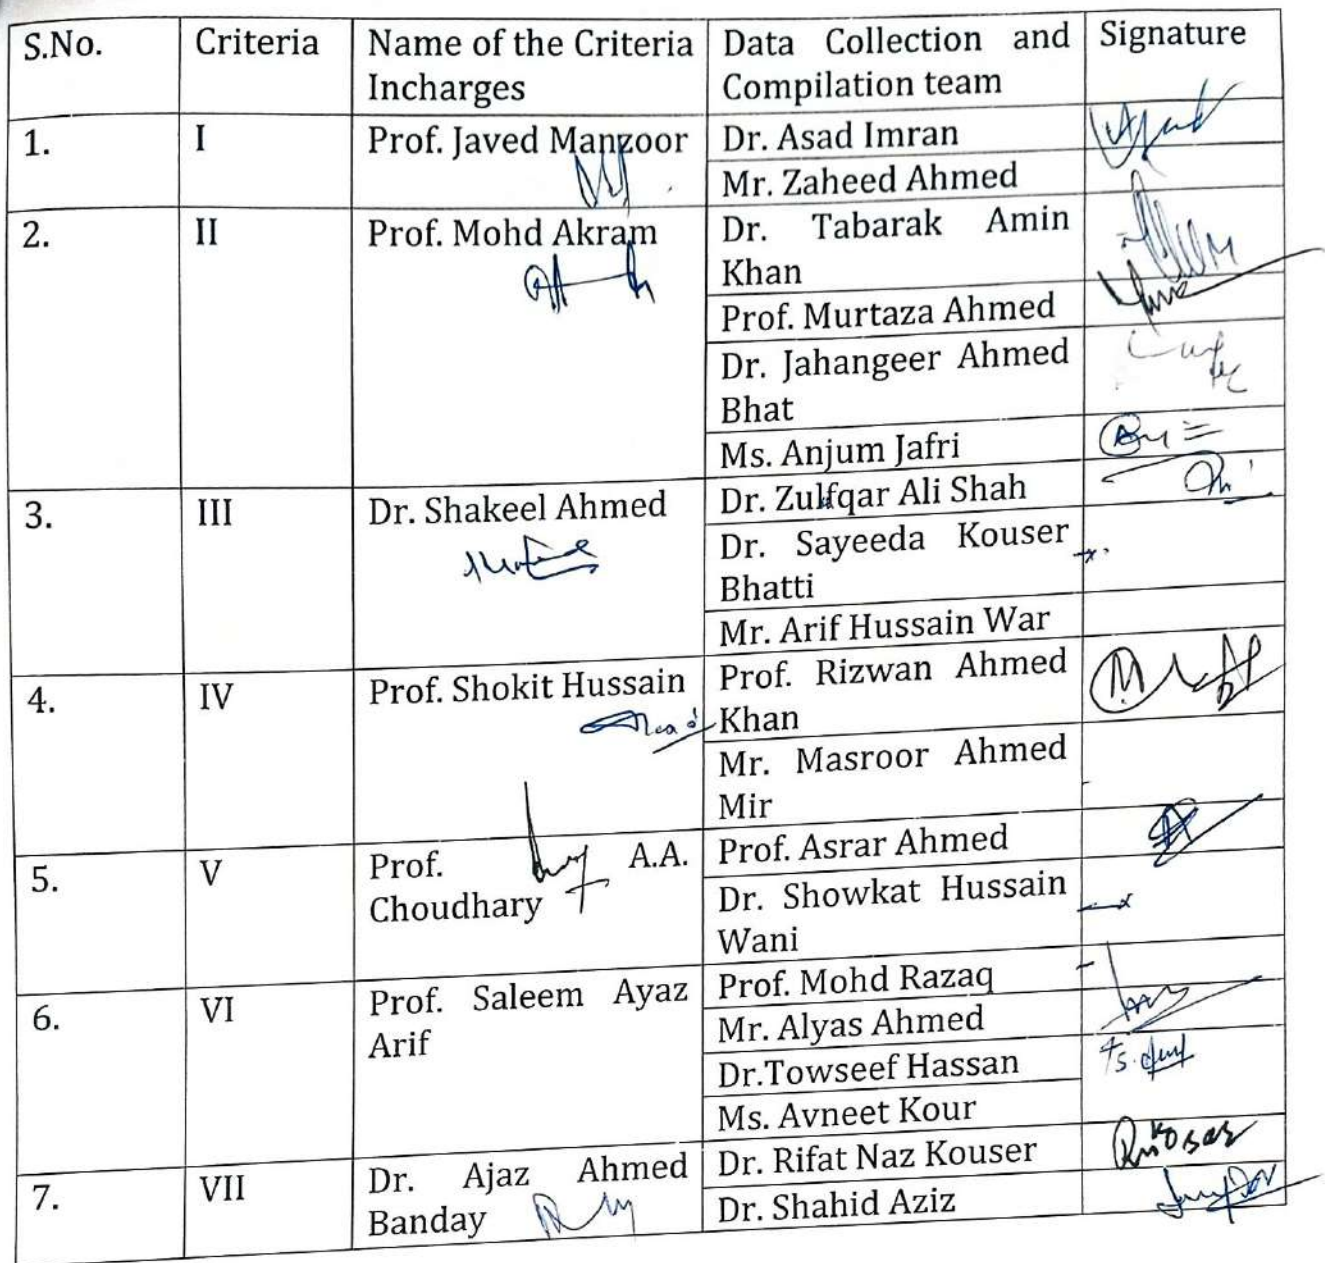 S.No. Criteria Name of the Criteria Data Collection and Signature
Incharges Compilation team
1. I Prof. Javed Manzoor Dr. Asad Imran
Mr. Zaheed Ahmed
2. II Prof. Mohd Akram Dr. Tabarak Amin
Khan
Prof. Murtaza Ahmed
Dr. Jahangeer Ahmed
Bhat
Ms. Anjum Jafri
3. III Dr. Shakeel Ahmed Dr. Zulfqar Ali Shah
Dr. Sayeeda Kouser
Bhatti
Mr. Arif Hussain War
4. IV Prof. Shokit Hussain Prof. Rizwan Ahmed
Khan
Mr. Masroor Ahmed
Mir
5. V Prof. A.A. Prof. Asrar Ahmed
Choudhary Dr. Showkat Hussain
Wani
6. VI Prof. Saleem Ayaz Prof. Mohd Razaq
Arif Mr. Alyas Ahmed
Dr.Towseef Hassan
Ms. Avneet Kour
7. VII Dr. Ajaz Ahmed Dr. Rifat Naz Kouser
Banday Dr. Shahid Aziz